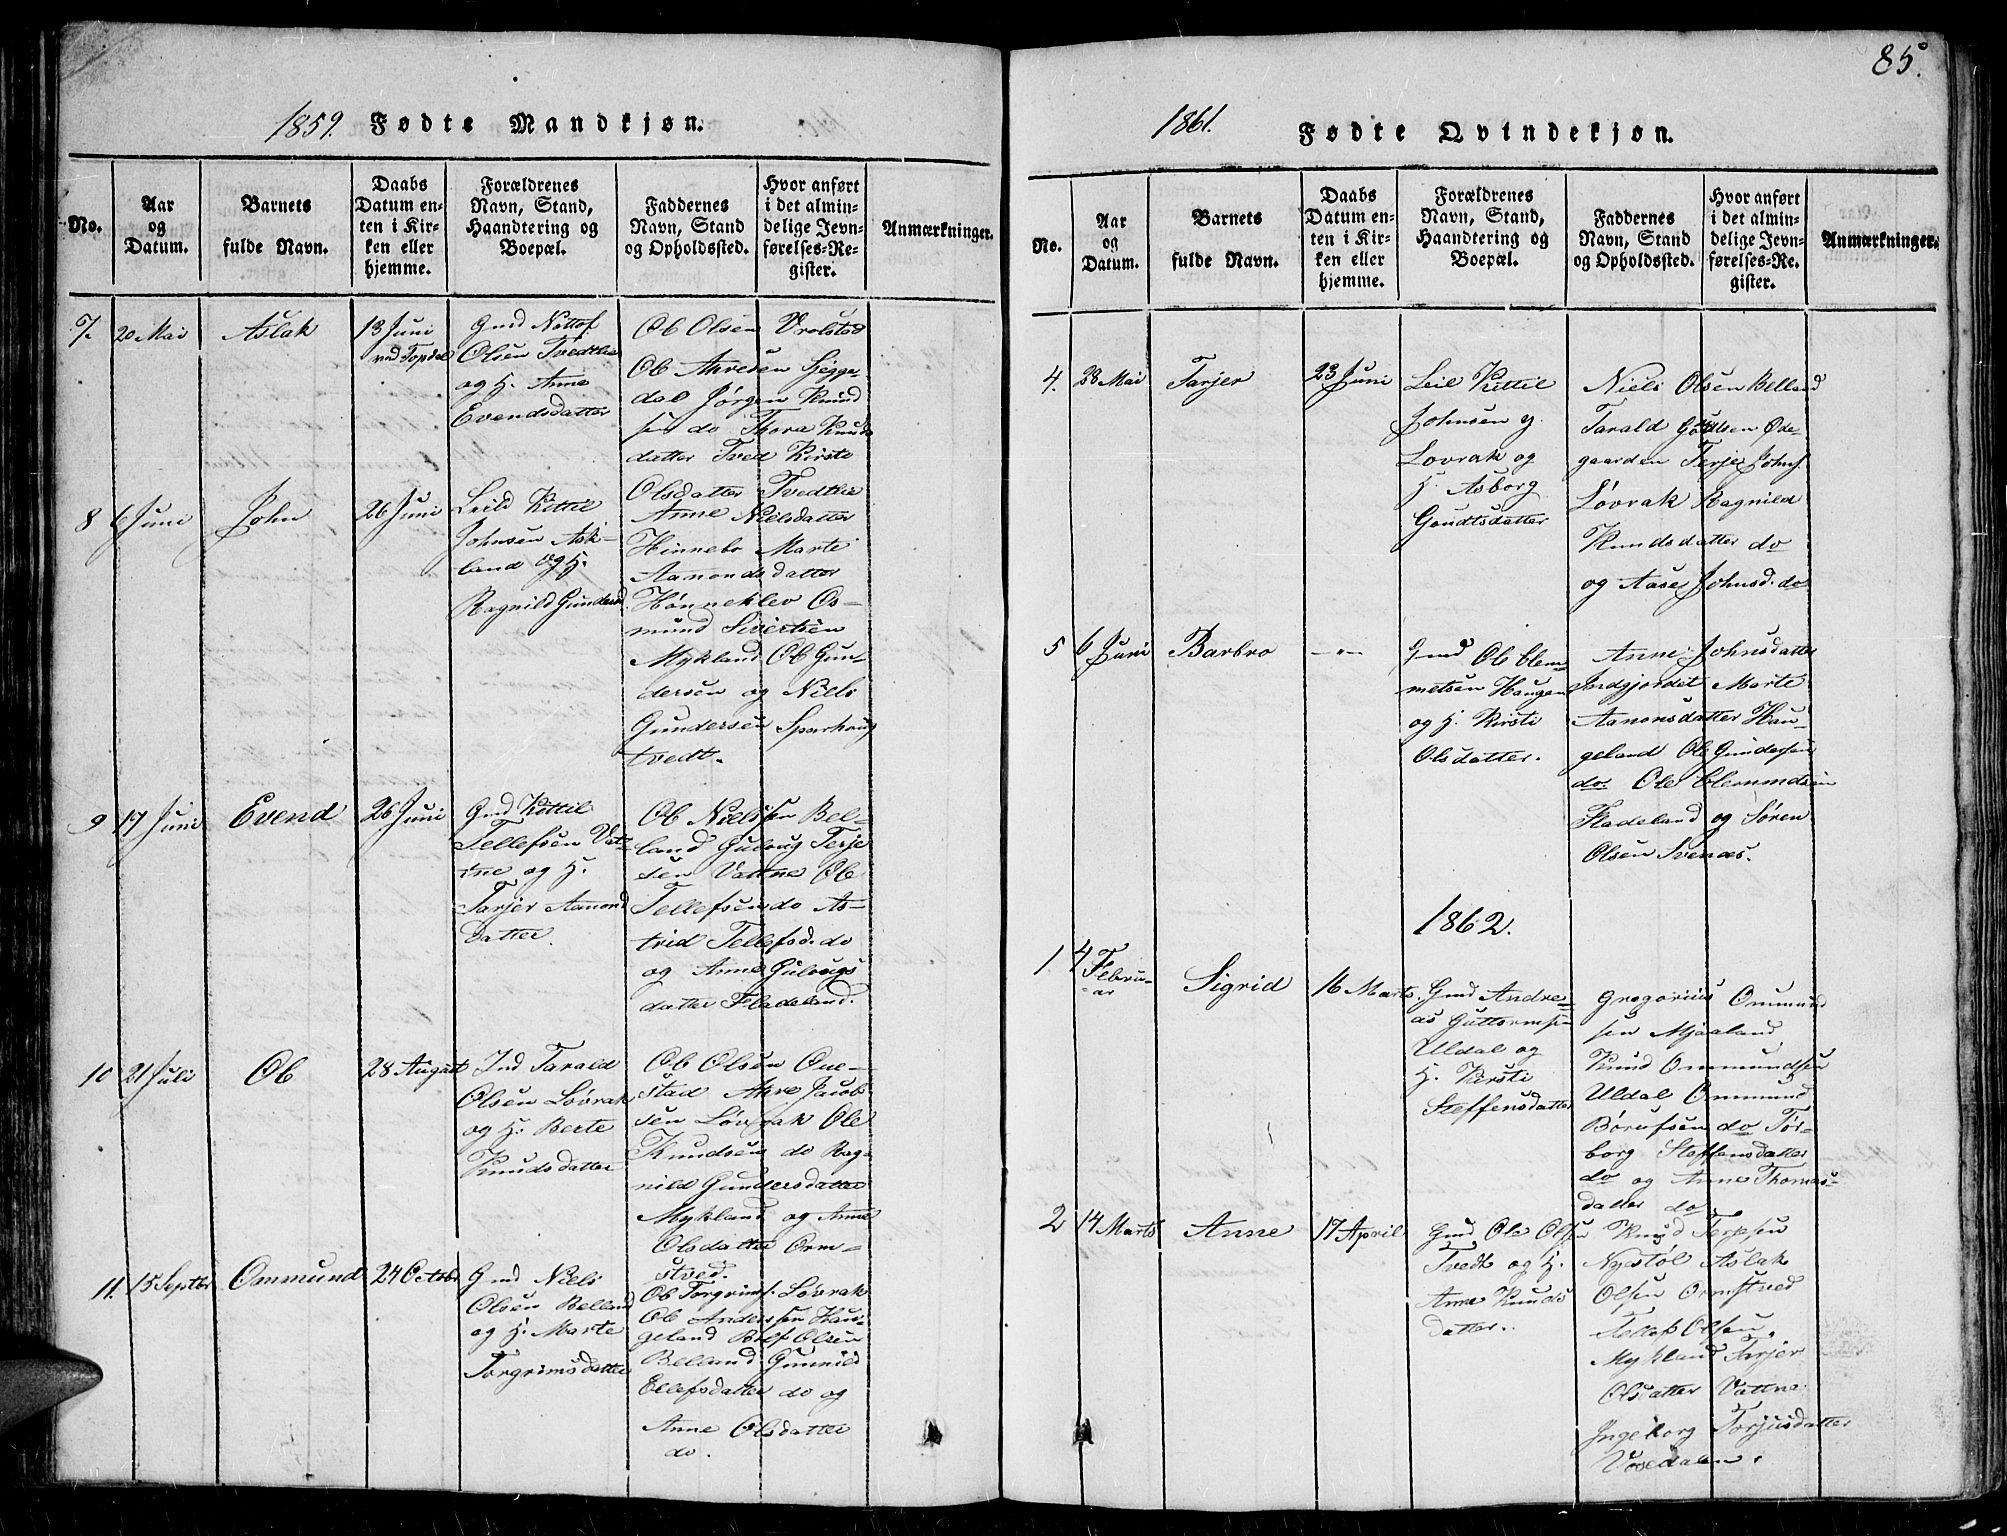 85.
1859. Fødte Mandkjøn.
No.
Aar
og
Datum.
Barnets
fulde Navn.
Daabs
Datum en-
ten i Kir-
ken eller
hjemme.
Forældrenes
Navn, Stand,
Haandtering og
Boepæl.
Faddernes
Navn, Stand
og Opholdssted.
Hvor anført
i det almin-
delige Jevn-
førelses-Re-
gister.
Anmærkninger.
7. 20 Mai Aslak 13 Juni
ved Topdal
Gmd Nottof
Olsen Tvedtlie
og H. Anne
Evendsdatter
Ob Olsen Vrolstad
Ob Anresen Hegge-
dal Jørgen Knud
sen do Thora Knuds
datter Tved Kirste
Olsdatter Tvedtlie
8 6 Juni John 26 Juni
Leild Kittil
Johnsen Ask-
land og H.
Ragnild Gundersd
Anne Nielsdatter
Hinnebo Marte
Aamondsdatter
Hønneklev Os-
mund Sivertsen
Mykland Ob Gun-
dersen og Niels
Gundersen Sparhoug
tvedt.
9 17 Juni Evend 26 Juni
Gmd Kittil
Tellefsen Vat-
tne og H.
Tarjer Aamond
datter.
Ob Nielssen Bel-
land Guloug Terje
sen Vattne Ob
Tellefsen do As-
trid Tellefsd. do
og Anne Gulougs
datter Fladeland.
10 21 Juli Ob 28 August
Ind Tarald
Olsen Lovrak
og H. Berte
Knudsdatter
Ob Olsen One-
stad Anre Jacob
sen Løvrak Ole
Knudsen do Rag-
nild Gundersdatter
Mykland og Anne
Olsdatter Orm-
stved.
11. 15 Septbr Ommund 24 Octobr
Gmd Niels
Olsen Belland
og H. Marte
Torgrimsdatter
Ob Torgrims. Løvrak
Ob Anderssen Hau-
geland Olsen
Belland Gunnild
Ellefsdatter do og
Anne Olsdatter
do.
1861. Fødte Qvindekjøn.
No.
Aar
og
Datum.
Barnets
fulde Navn.
Daabs
Datum en-
ten i Kir-
ken eller
hjemme.
Forældrenes
Navn, Stand,
Haandtering og
Boepæl.
Faddernes
Navn, Stand
og Opholdssted.
Hvor anført
i det almin-
delige Jevn-
førelses-Re-
gister.
Anmærkninger.
4. 28 Mai Tarjer 23 Juni
Leil Kittil
Johnsen y.
Lovrak og
H. Asborg
Goudtsdatter
Niels Olsen Belland
Tarald Olsen Øde-
gaarden Terje Johns.
Løvrak Ragnild
Knudsdatter do
og Aase Johnsd. do
5 6 Juni Barbro -"-
Gmd Ob Clem
metsen Haugen
og H. Kirsti
Olsdatter.
Anne Johnsdatter
Indgjordet Marte
Aanonsdatter Hau-
geland Ole Gundersen
do. Ole Clemmedsen
Fladeland og Søren
Olsen Svenæs.
1862.
1. 4 Febru-
ar Sigrid 16 Marts
Gmd Andre-
as Guttormse
Uldal og
H. Kirsti
Steffensdatter
Gregorius Ommund
sen Mjaaland
Knud Ommundsen
Uldal Ommund
Børufsen do Tor-
borg Steffensdatter
do og Anne Thomas-
datter do.
2 14 Marts Anne 17 April
Gmd Ole Olsen
Tvedt og H.
Anne Knuds
datter.
Knud Terjesen
Nystøl Aslak
Olsen Ormstved
Tellef Olsen
Mykland Tarjer
Olsdatter Vattne
Ingeborg Torjusdatter
Vosedalen.